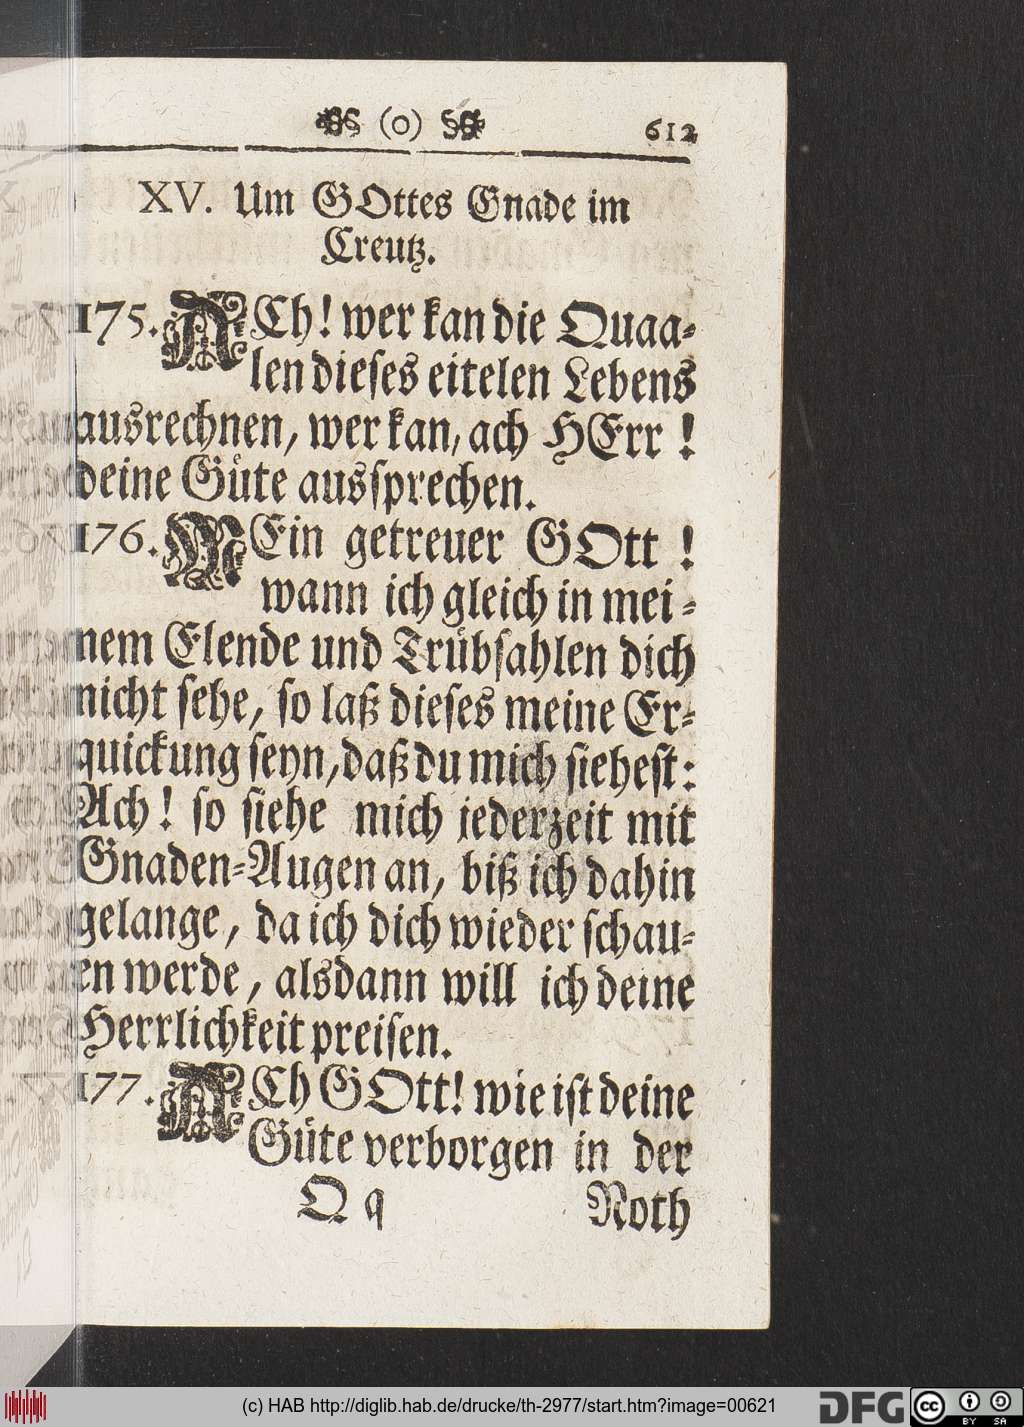 (o) 612
XV. Um GOttes Gnade im
Creutz.
175. ACh! wer kan die Quaa-
len dieses eitelen Lebens
ausrechnen, wer kan, ach HErr!
deine Güte aussprechen.
176. MEin getreuer GOtt!
wann ich gleich in mei-
nem Elende und Trübsahlen dich
nicht sehe, so laß dieses meine Er-
quickung seyn, daß du mich siehest:
Ach! so siehe mich jederzeit mit
Gnaden-Augen an, biß ich dahin
gelange, da ich dich wieder schau-
en werde, alsdann will ich deine
Herrlichkeit preisen.
177. ACh GOtt! wie ist deine
Güte verborgen in der
Q q Noth
(c) HAB http://diglib.hab.de/drucke/th-2977/start.htm?image=00621 DFG cc BY SA